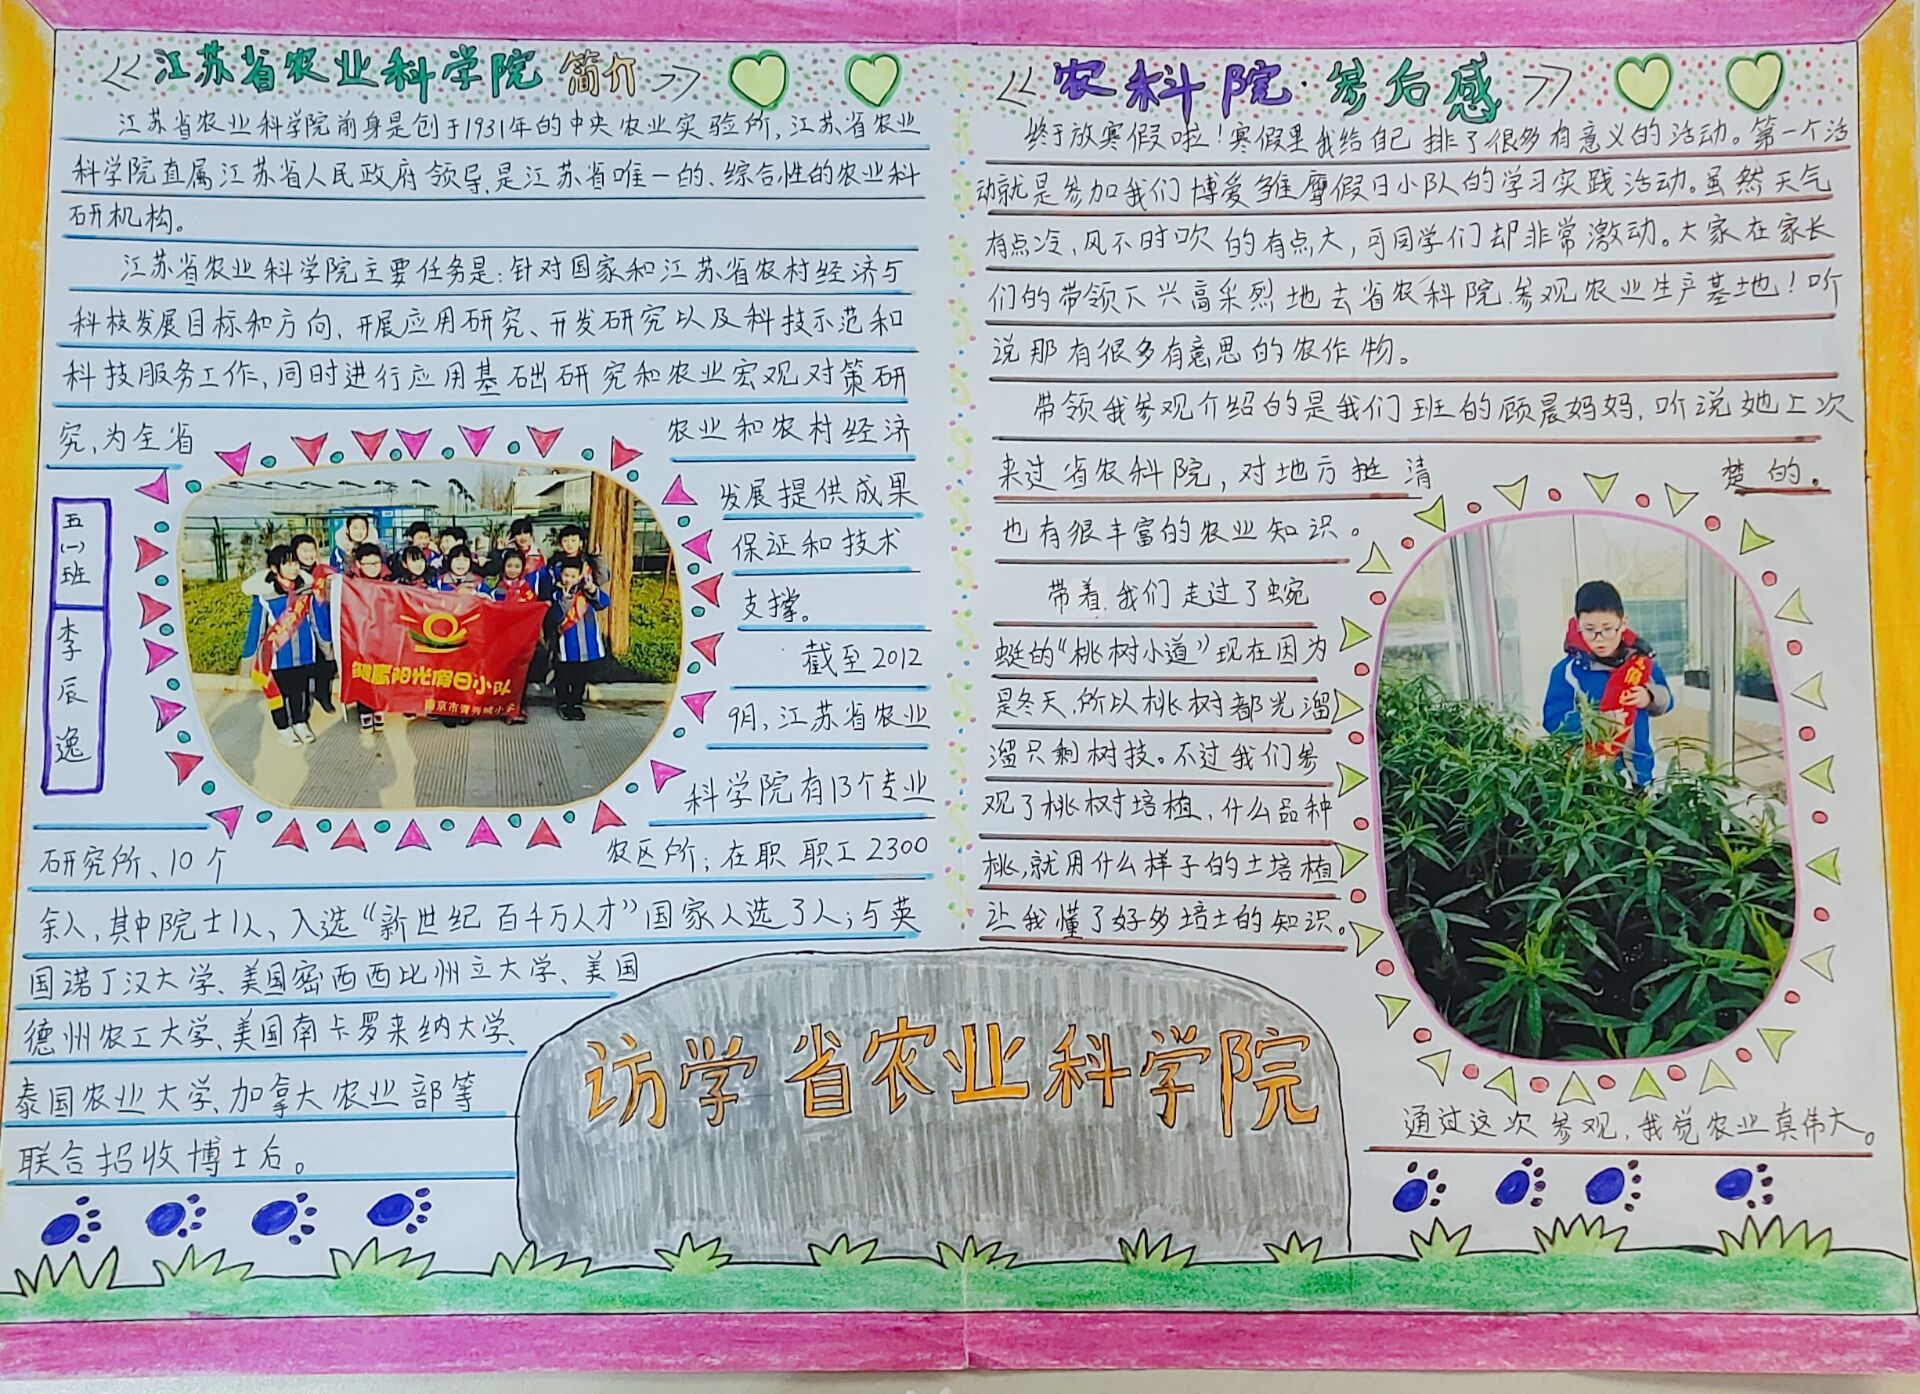 《江苏省农业科学院简介》
江苏省农业科学院前身是创于1931年的中央农业实验所,江苏省农业
科学院直属江苏省人民政府领导,是江苏省唯一的、综合性的农业科
研机构。
江苏省农业科学院主要任务是:针对国家和江苏省农村经济与
科技发展目标和方向、开展应用研究、开发研究以及科技示范和
科技服务工作,同时进行应用基础研究和农业宏观对策研
究,为全省
农业和农村经济
发展提供成果
保证和技术
支撑。
截至2012
9月,江苏省农业
科学院有13个专业
研究所、10个
农区所;在职职工2300
余人,其中院士1人、入选“新世纪百千万人才”国家人选了人;与英
国诺丁汉大学、美国密西西比州立大学、美国
德州农工大学、美国南卡罗来纳大学、
泰国农业大学、加拿大农业部等
联合招收博士后。
五(一)班
李辰逸
阳光假日小队
南京市
《农科院·参后感》
终于放寒假啦!寒假里我给自己排了很多有意义的活动。第一个活
动就是参加我们博爱雏鹰假日小队的学习实践活动。虽然天气
有点冷,风不时吹的有点大,可同学们却非常激动。大家在家长
们的带领下兴高采烈地去省农科院参观农业生产基地!听
说那有很多有意思的农作物。
带领我参观介绍的是我们班的顾晨妈妈,听说她上次
来过省农科院,对地方挺清楚的。
也有很丰富的农业知识。
带着我们走过了蜿
蜒的“桃树小道”现在因为
是冬天,所以桃树都光溜
溜只剩树技。不过我们参
观了桃树培植,什么品种
桃,就用什么样子的土培植
让我懂了好多培土的知识。
通过这次参观,我觉农业真伟大。
访学省农业科学院